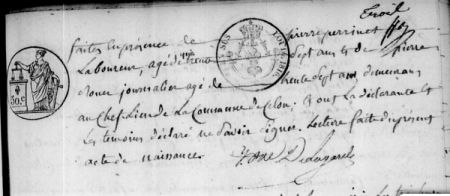 Troil
faites en présence de pierre perrinet
Laboureur, agé de trente sept ans & de pierre
journalier agé de trente sept ans, demeurans
au Chef Lieu de La Commune de Celon, & ont La déclarante et
les temoins déclaré ne Savoir Signer. Lecture faite du présent
acte de naissance.
30 c